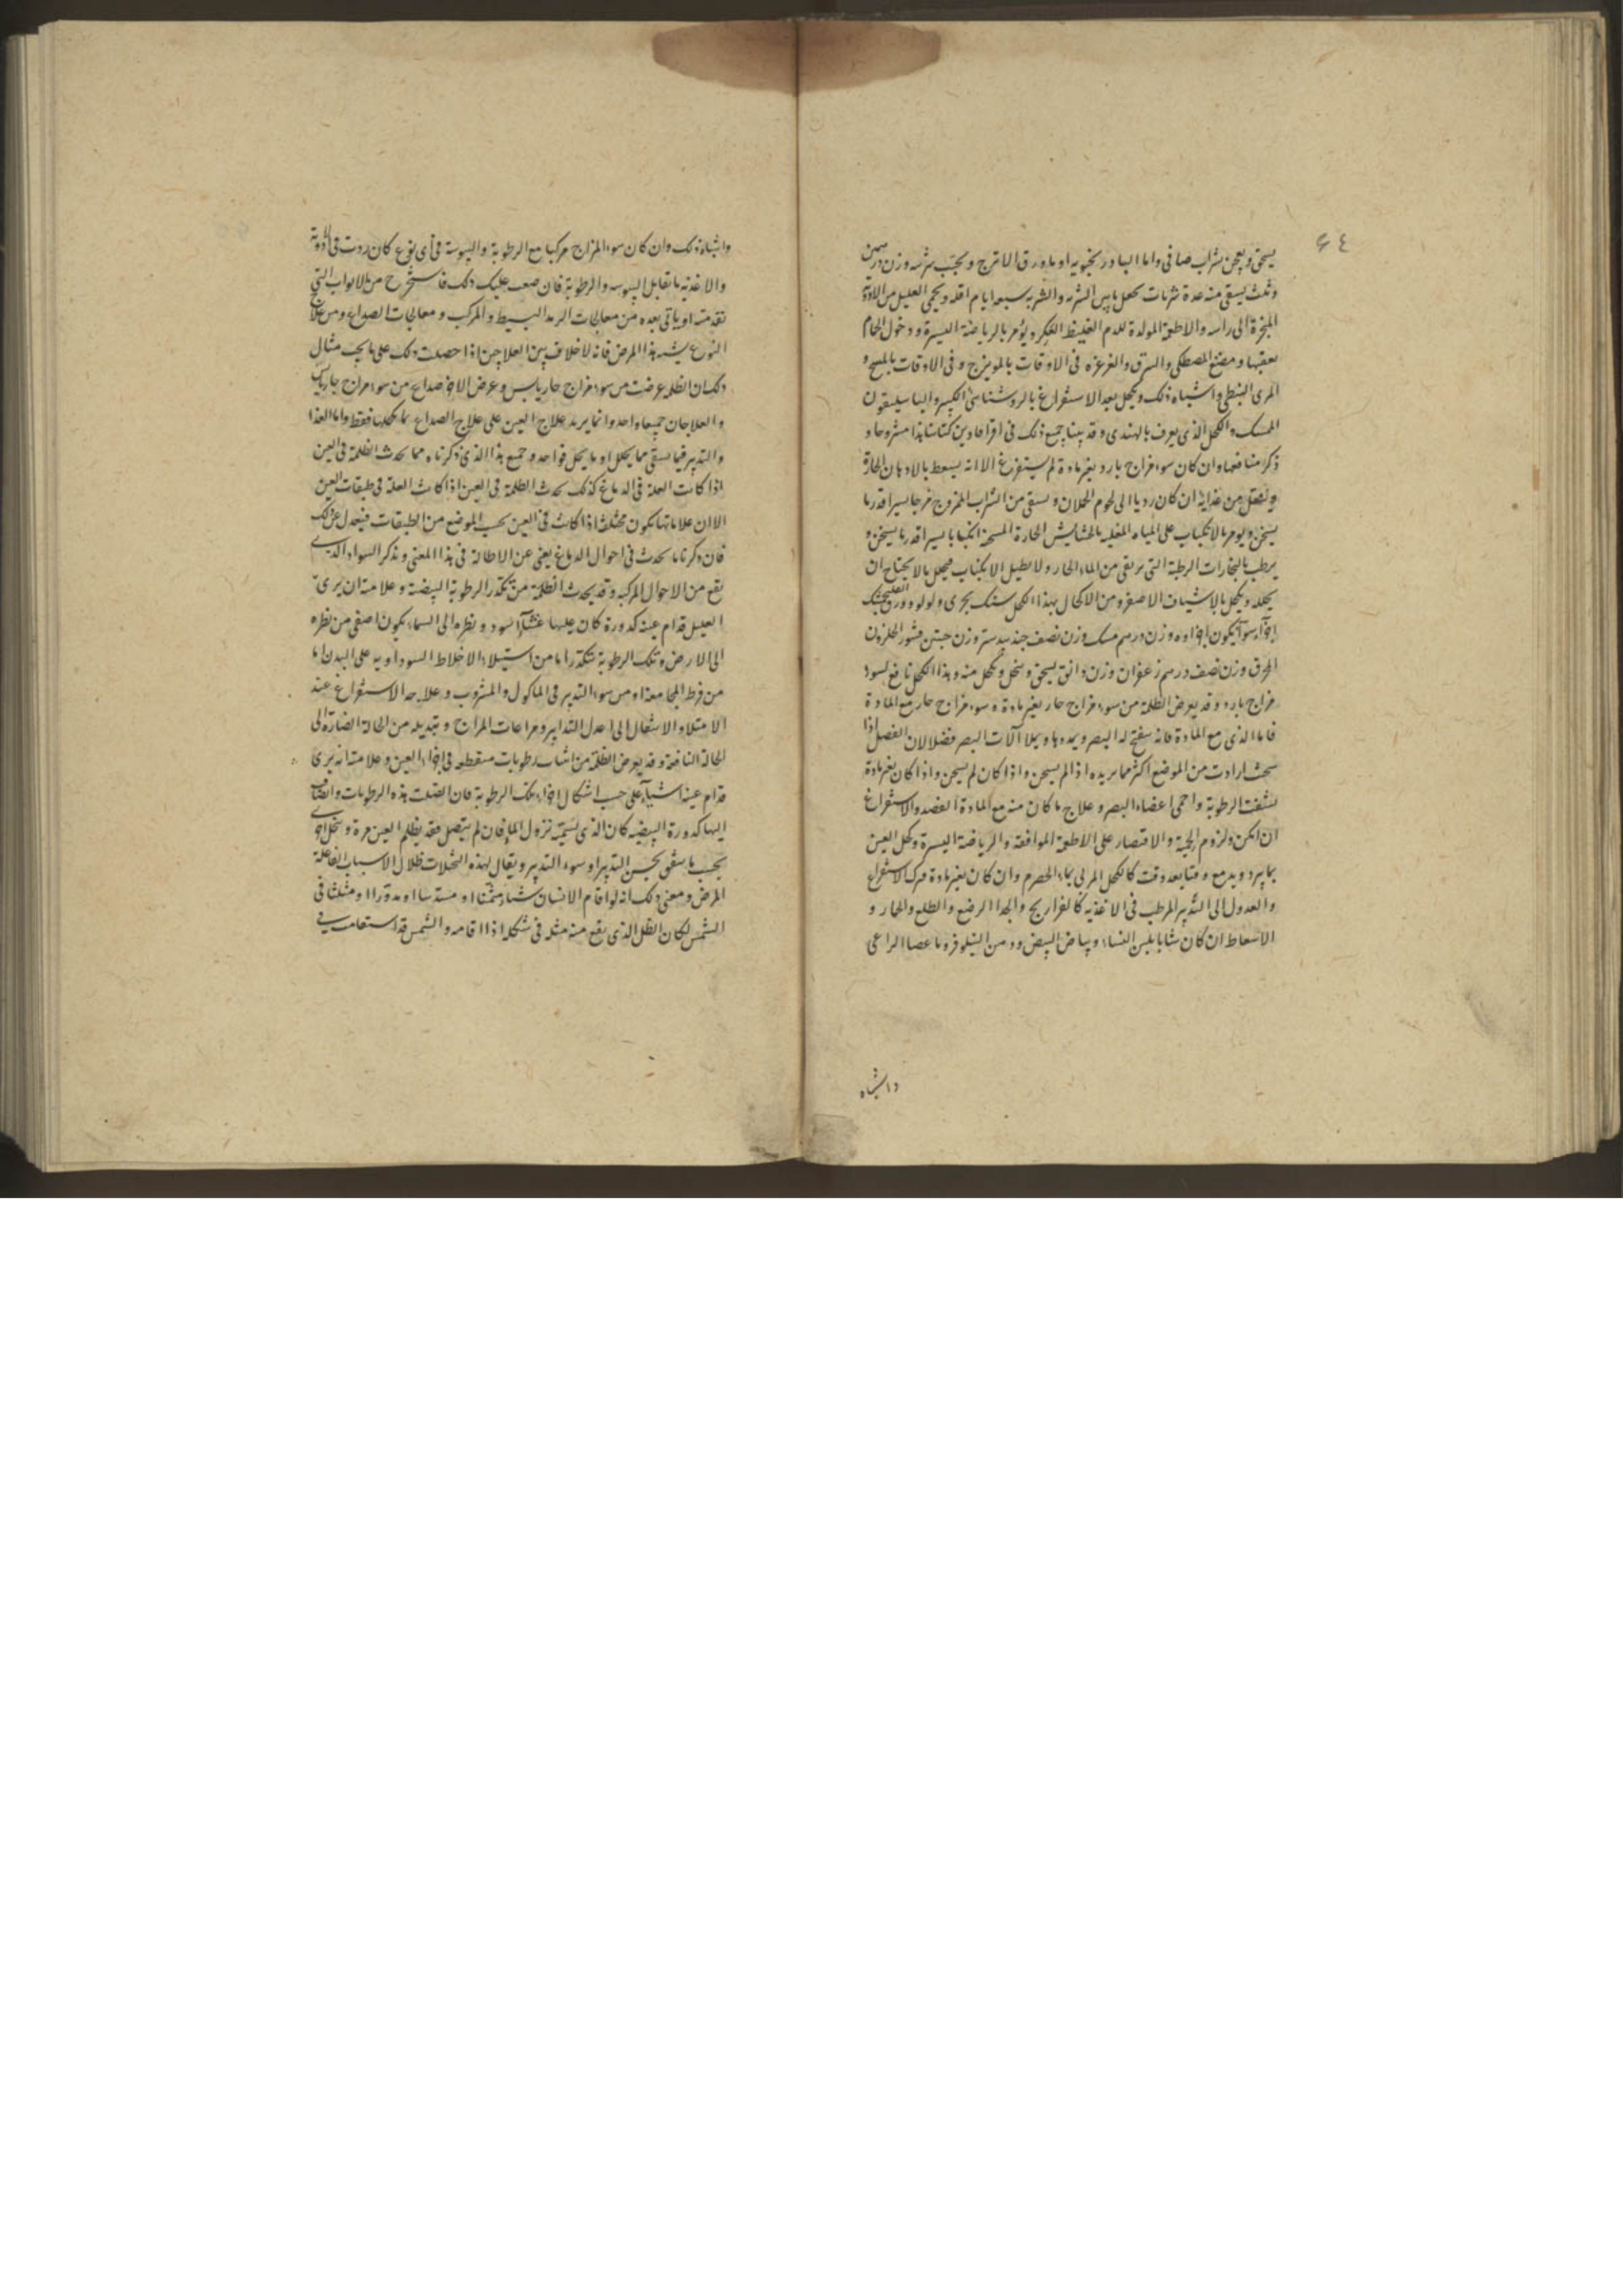 ٤٤
يسحق ويعجن بشراب صافى واما البادرنجبويه او ماء ورق الاترج ويحبب شربه وزن درهمين
وثلث يسقى منه عدة شربات يجعل بين الشربه والشربه سبعه ايام اقله ويحمى العليل من الادوية
المبخرة الى راسه والاطعمة المولدة للدم الغليظ العكر ويؤمر بالرياضة اليسيرة ودخول الحمام
بعقبها ومضغ المصطكى والغرغره فى الاوقات بالمويزج وفى الاوقات
المرى النبطى واشباه ذلك ويكحل بعد الاستفراغ بالروشنائى الكبير والباسليقون
الممسك والكحل الذى يعرف بالهندى وقد بينا جميع ذلك فى اقرافادين كتابنا هذا مشروحا و
ذكرنا منافعها وان كان سوء مزاج بارد بغير مادة لم يستفرغ الا انه يسعط بالادهان الحارة
وينتقل من غذايه ان كان رديا الى لحوم الحملان ويسقى من الشراب الممزوج مزجا يسيرا قدر ما
يسخن ويومر بالانكباب على المياه المغليه بالحشايش الحارة المسخنة انكبابا يسيرا قدر ما يسخن و
يرطب بالبخارات الرطبة التى ترتقى من الماء الحار ولا يطيل الانكباب فيحلل ما لا يحتاج ان
يحلله ويكحل بالاشياف الاصفر ومن الاكحال بهذا الكحل سنك بحرى ولولو وورق
اجزآء سوآء يكون اجزاوه وزن درهم مسك وزن نصف جندبيدستر وزن حبتين قشور الحلزون
المحرق وزن نصف درهم زعفران وزن دانق يسحق وينخل ويكحل منه وهذا الكحل نافع لسوء
مزاج بارد وقد يعرض الظلمة من سوء مزاج حار بغير مادة وسوء مزاج حار مع المادة
فاما الذى مع المادة فانه يفتح له البصر ويمددها ويملا آلات البصر فضلا لان الفضل اذا
سخن ارادت من الموضع اكثر مما يريده اذا لم يسخن واذا كان لم يسخن واذا كان بغير مادة
نشفت الرطوبة واحمى اعضاء البصر وعلاج ما كان منه مع المادة الفصد والاستفراغ
ان امكن ولزوم الحمية والاقتصار على الاطعمة الموافقة والرياضة اليسيرة وكحل العين
بما يبرد ويدمع وقتا بعد وقت كالكحل المربى بماء الحصرم وان كان بغير مادة فترك الاستفراغ
والعدول الى التدبير المرطب فى الاغذيه كالفراريج والجداا الرضع والطلع والجمار و
الاسعاط ان كان شابا بلبن النساء وبياض البيض ودهن النيلوفر وما عصا الراعى
واشباه
واشباه ذلك وان كان سوء المزاج مركبا مع الرطوبة واليبوسة فى اى نوع كان زدت فى الادوية
والاغذيه ما يقابل اليبوسه والرطوبة فان صعب عليك ذلك فاستخرج من الابواب التى
تقدمت او ياتى بعده من معالجات الرمد البسيط والمركب ومعالجات الصداع ومن علاج
النوع يشبه هذا المرض فانه لا خلاف بين العلاجين اذا حصلت ذلك على ما يجب مثال
ذلك ان الظلمه عرضت من سوء مزاج حار يابس وعرض الاخر صداع من سوء مزاج حار يابس
والعلاجان جميعا واحد وانما يريد علاج العين على علاج الصداع بما يكحلها فقط واما الغذا
والتدبير فيما يسقى مما يحلل او ما يحل فواحد وجميع هذا الذى ذكرناه مما يحدث الظلمة فى العين
اذا كانت العلة فى الدماغ كذلك يحدث الظلمة فى العين اذا كانت العلة فى طبقات العين
الا ان علاماتها يكون مختلفة اذا كانت فى العين بحسب الموضع من الطبقات فيعدل عن ذلك
فان ذكرنا ما يحدث فى احوال الدماغ يغنى عن الاطالة فى هذا المعنى ونذكر السواد الذى
يقع من الاحوال المركبه وقد يحدث الظلمة من تكدر الرطوبة البيضية وعلامته ان يرى
العليل قدام عينه كدورة كان عليها غشآء اسود ونظره الى السماء يكون اصفى من نظره
الى الارض وتلك الرطوبة تتكدر اما من استيلاء الاخلاط السوداويه على البدن اما
من فرط المجامعة او من سوء التدبير فى الماكول والمشروب وعلاجه الاستفراغ عند
الامتلاء والانتقال الى اعدل التدابير ومراعات المزاج وتبديله من الحالة الضارة الى
الحالة النافعة وقد يعرض الظلمة من اشباب رطوبات متقطعه فى اجزاء العين وعلامته انه يرى
قدام عينه اشياء على حسب اشكال اجزاء تلك الرطوبة فان اتصلت هذه الرطوبات وانضاف
اليها كدورة البيضيه كان الذى نسميه نزول الماء فان لم يتصل فقد يظلم العين مرة وينجلى اخرى
بحسب ما يتفق بحسن التدبير او سوء التدبير ويقال لهذه التخيلات ظلال الاسباب الفاعلة
المرض ومعنى ذلك انه لو اقام الانسان شيئا مثمنا او مسدسا او مدورا او مثلثا فى
الشمس لكان الظل الذى يقع منه مثله فى شكله اذا اقامه والشمس قد استقامت فى